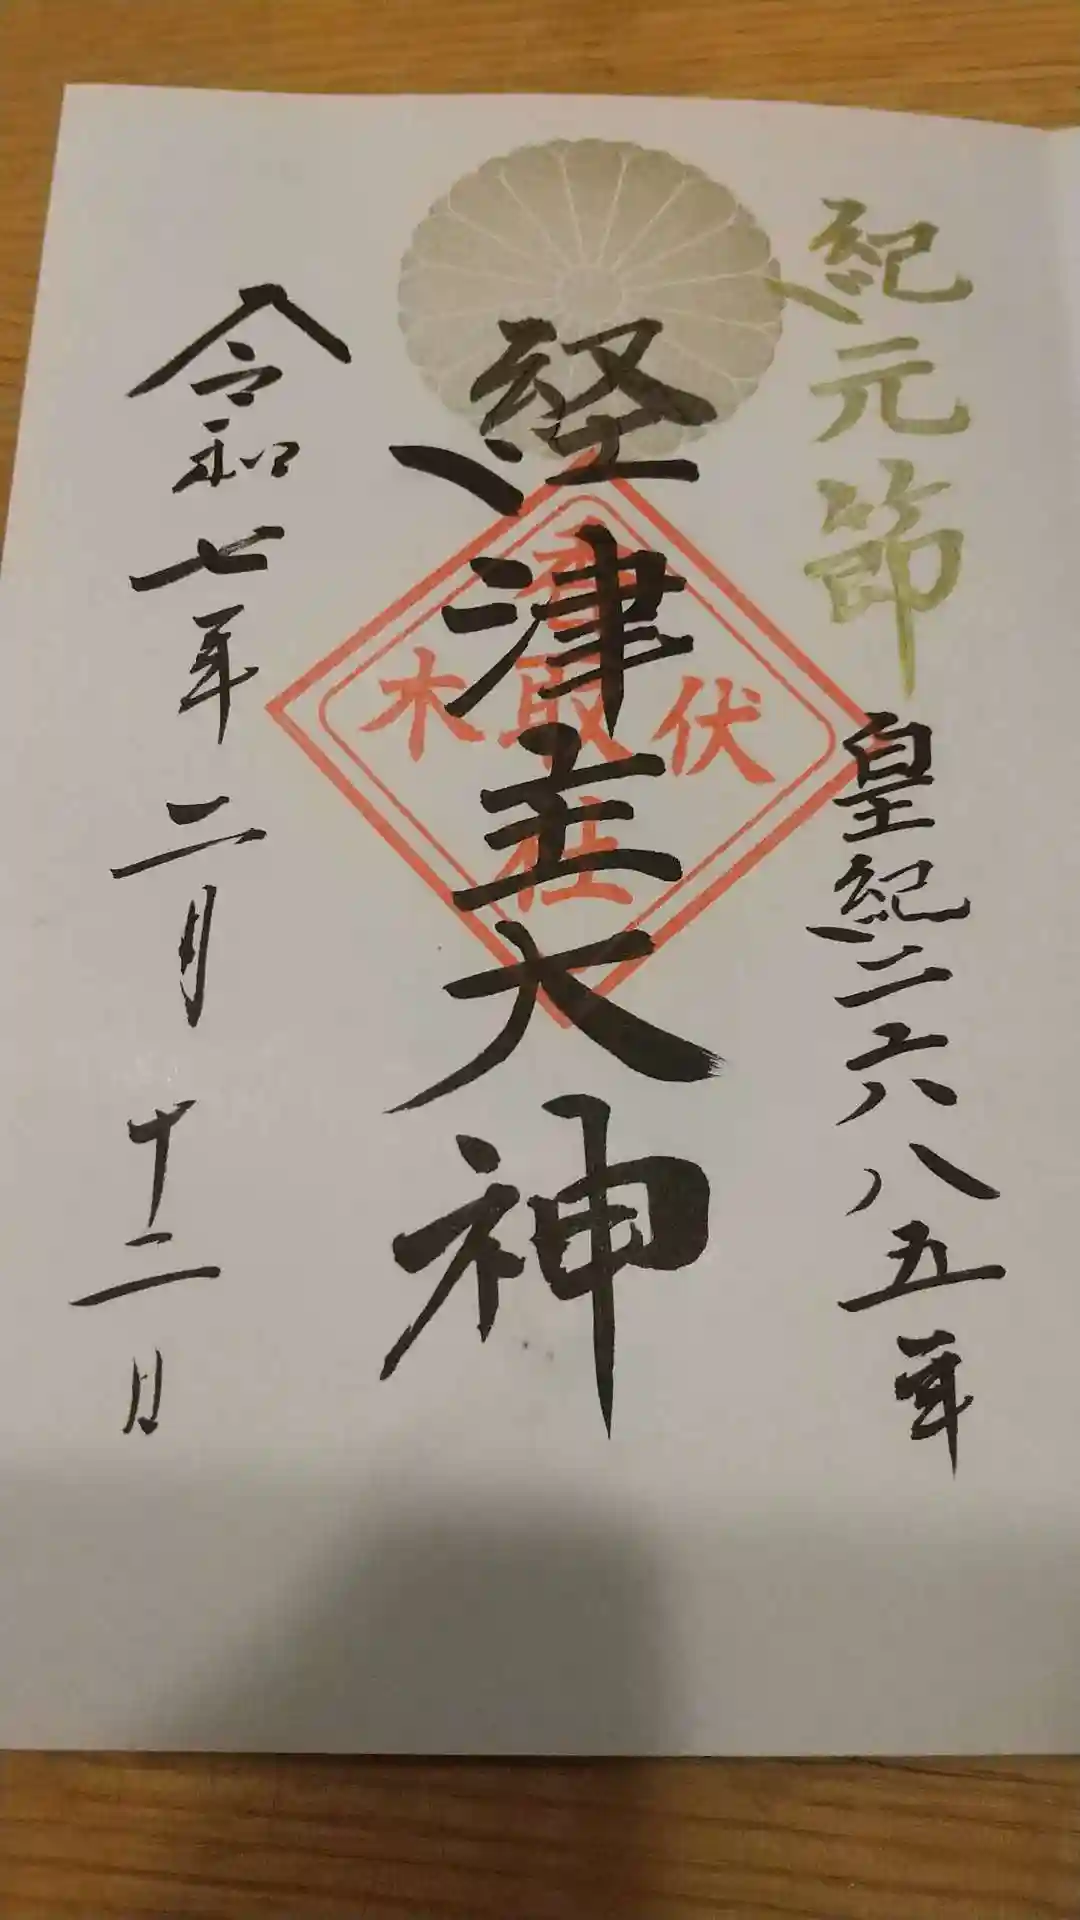 紀元節
皇紀二六八五年
経津主大神
伏
香取社
木
令和七年二月十二日